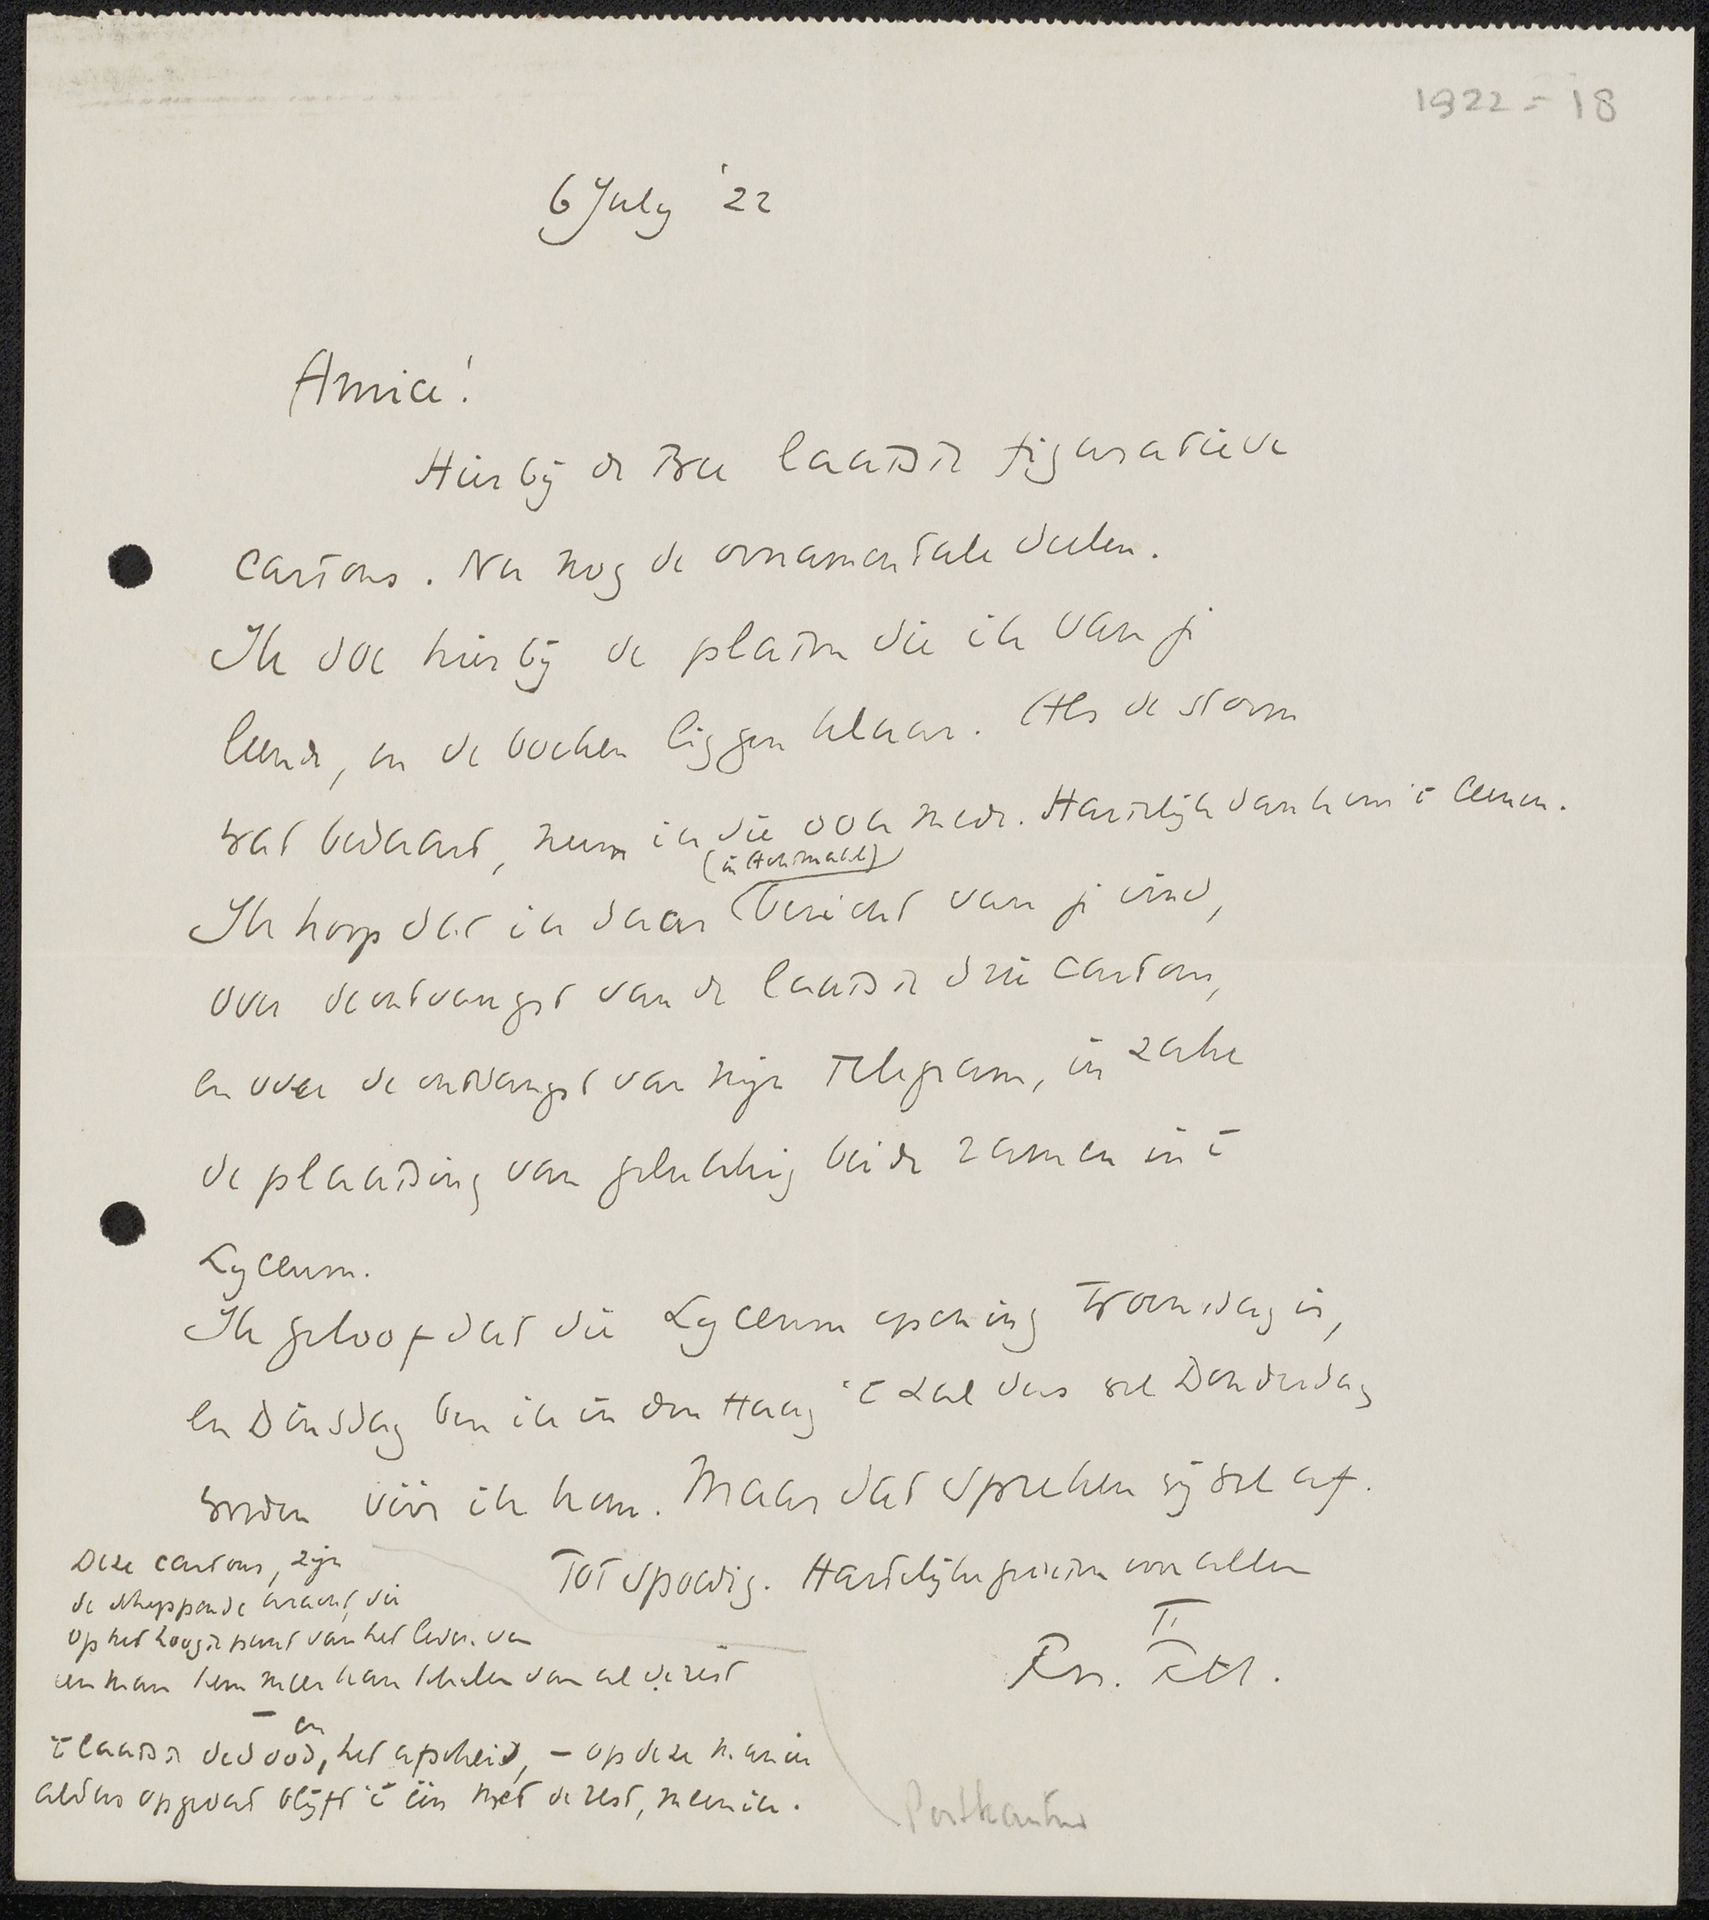 1922 = 18
6 July '22
Amice!
Hierbij de twee laatste figuratieve
cartons. Nu nog de ornamentale deelen.
Ik doe hierbij de platen die ik van je
leende, en de boeken liggen klaar. Als de storm
wat bedaard, neem ik die ook mede. Hartelijk dank om 't leenen.
(in Achtmaal)
Ik hoop dat ik daar bericht van je vind,
over de ontvangst van de laatste drie cartons,
en over de ontvangst van mijn Telegram, in zake
de plaatsing van gelukkig beide zamen in 't
Lyceum.
Ik geloof dat die Lyceum opening Woensdag is,
en Dinsdag ben ik in den Haag 't zal dus wel Donderdag
worden vóór ik kom. Maar dat spreken wij wel af.
Tot spoedig. Hartelijke groeten van allen
Deze cartons, zijn
de scheppende kracht, die
op het hoogste punt van het leven van
een man hem meer kan schelen dan al de rest
't laatste de dood, en het afscheid, – op deze manier
aldus opgevat blijft 't één met de rest, meen ik.
Postkantoor